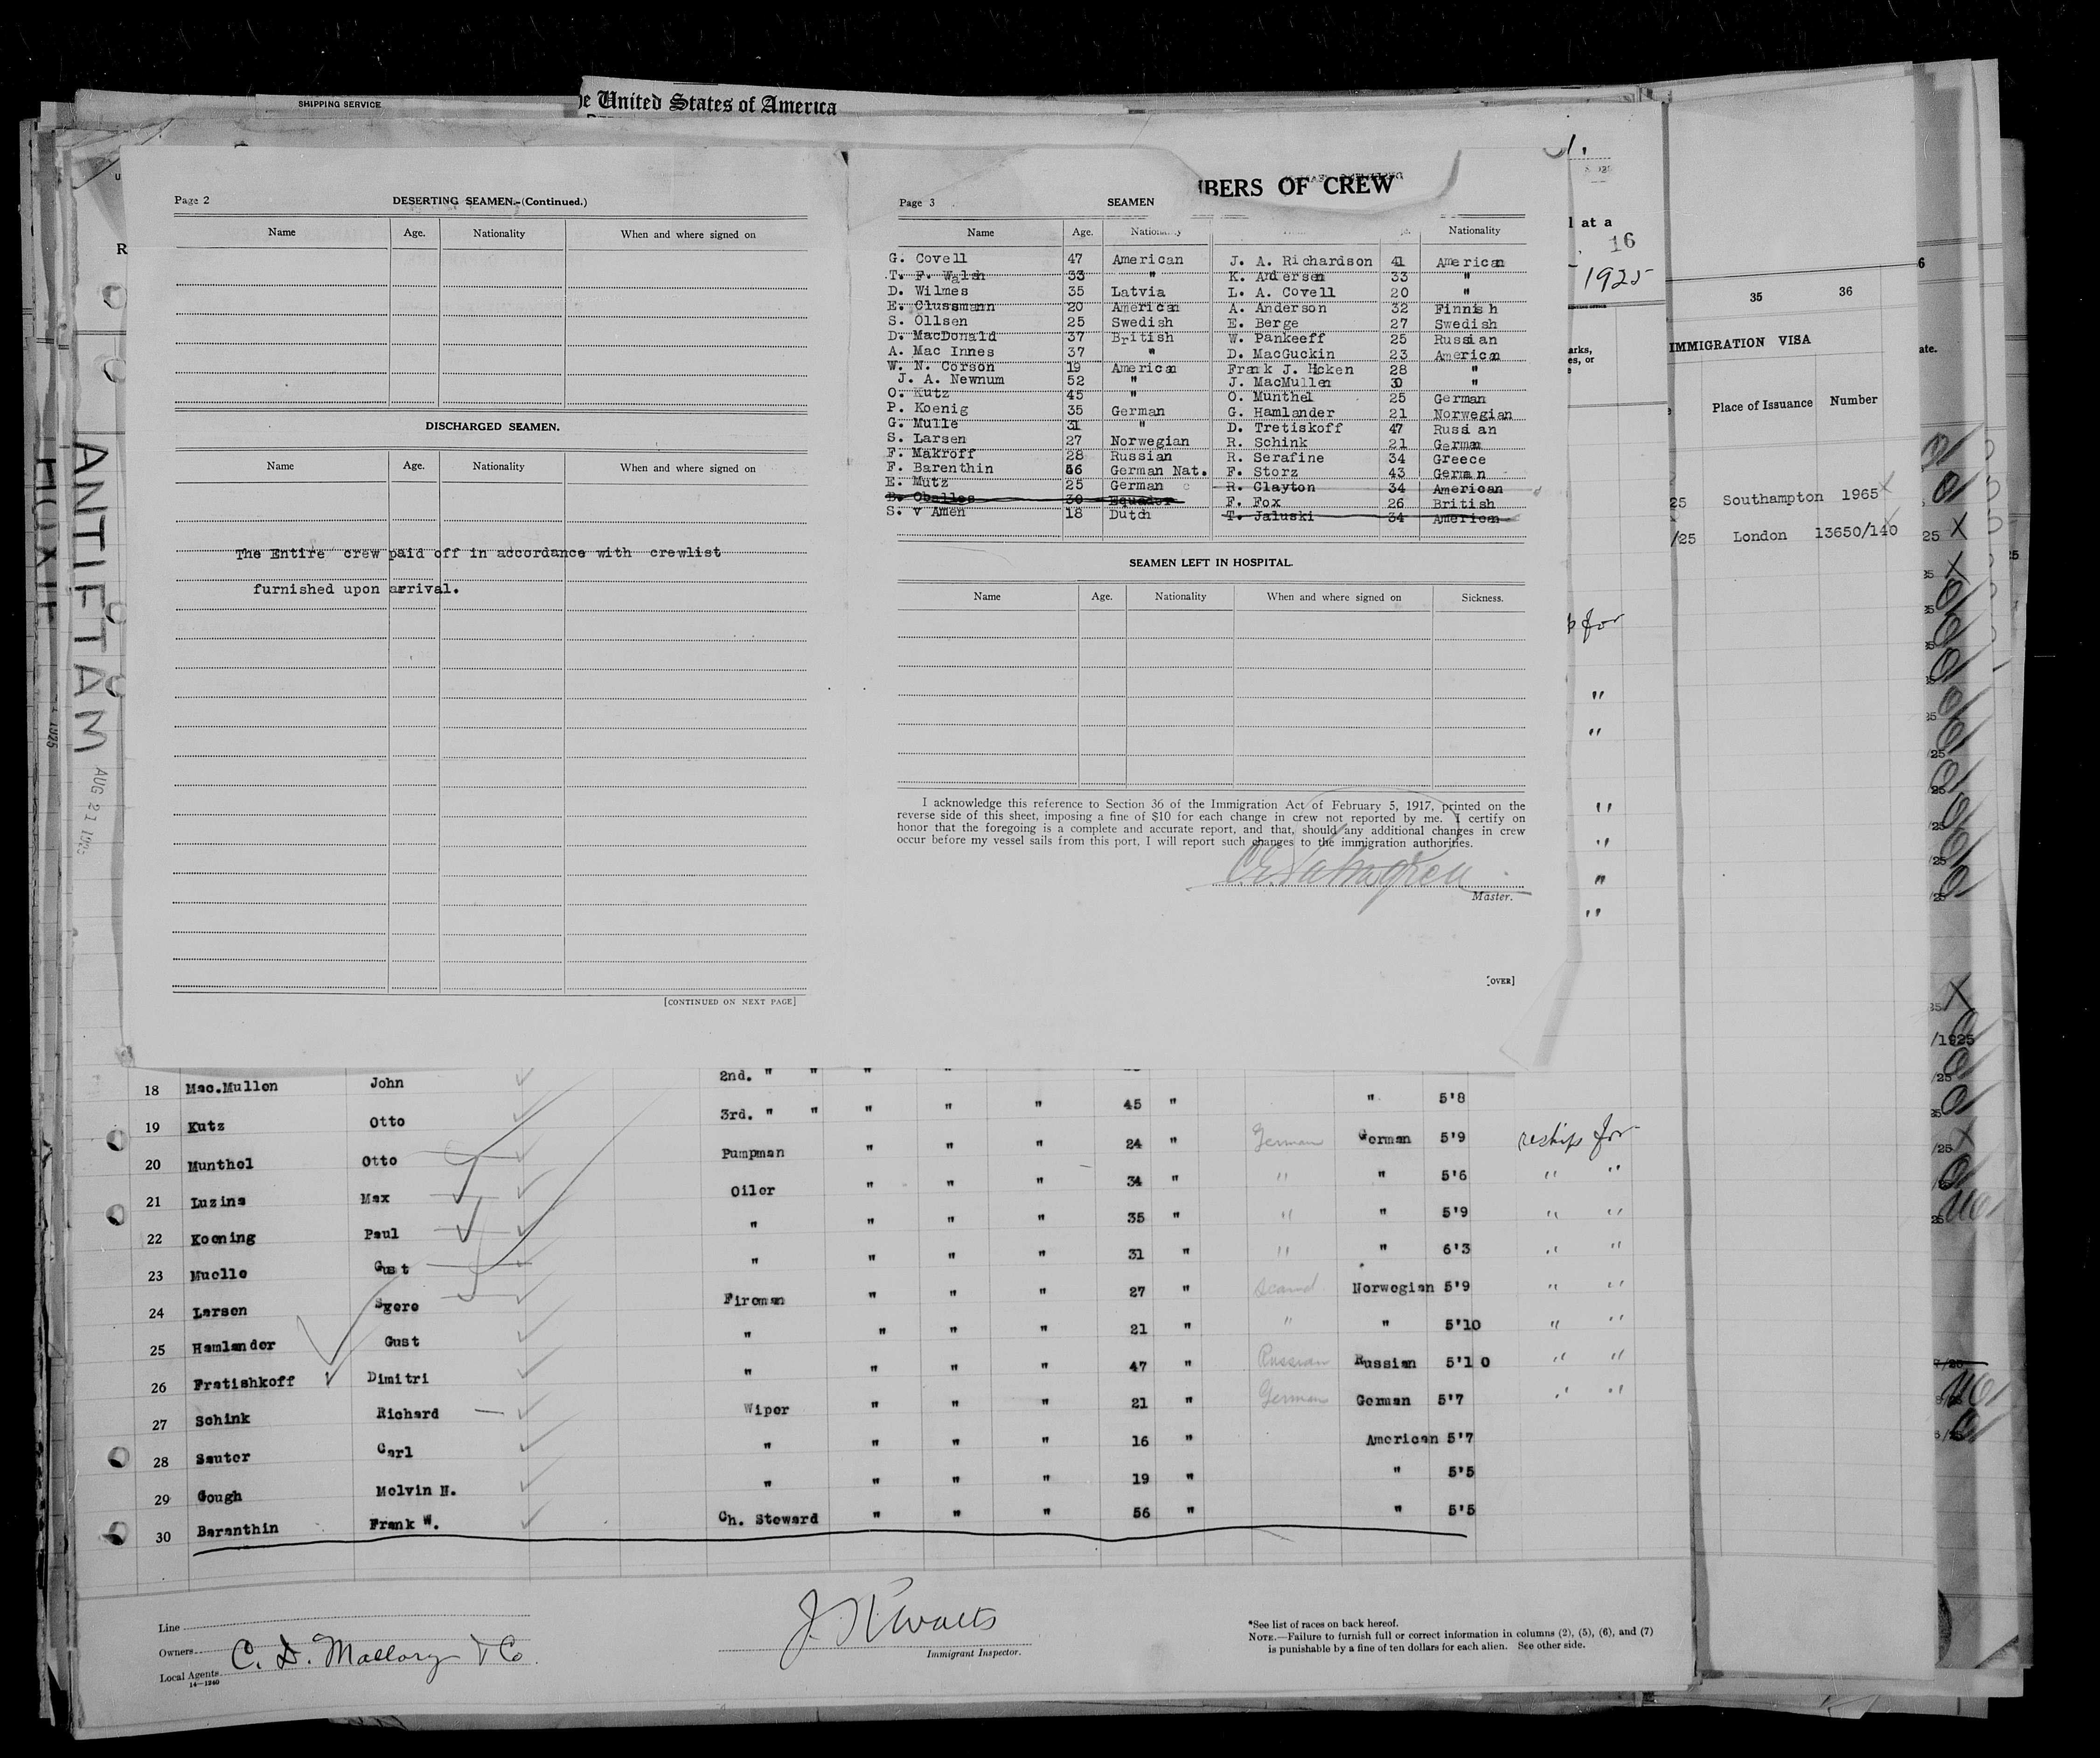 SHIPPING SERVICE
United States of America
Page 2
DESERTING SEAMEN.-(Continued.)
Name Age. Nationality When and where signed on
DISCHARGED SEAMEN.
Name Age. Nationality When and where signed on
The Entire crew paid off in accordance with crewlist
furnished upon arrival.
[CONTINUED ON NEXT PAGE]
BERS OF CREW
Page 3 SEAMEN
Name Age. Nationality Nationality
G. Covell 47 American J. A. Richardson 41 American
T. F. Walsh 33 " K. Andersen 33 "
D. Wilmes 35 Latvia L. A. Covell 20 "
E. Clussmann 20 American A. Anderson 32 Finnish
S. Ollsen 25 Swedish E. Berge 27 Swedish
D. MacDonald 37 British W. Pankeeff 25 Russian
A. Mac Innes 37 " D. MacGuckin 23 American
W. N. Corson 19 American Frank J. Hcken 28 "
J. A. Newnum 52 " J. MacMullen 30 "
O. Kutz 45 " O. Munthel 25 German
P. Koenig 35 German G. Hamlander 21 Norwegian
G. Mulle 31 " D. Tretiskoff 47 Russian
S. Larsen 27 Norwegian R. Schink 21 German
F. Makroff 28 Russian R. Serafine 34 Greece
F. Barenthin 56 German Nat. F. Storz 43 German
E. Mutz 25 German R. Clayton 34 American
30 Equador F. Fox 26 British
S. v Amen 18 Dutch T. Jaluski 34 American
SEAMEN LEFT IN HOSPITAL.
Name Age. Nationality When and where signed on Sickness.
I acknowledge this reference to Section 36 of the Immigration Act of February 5, 1917, printed on the
reverse side of this sheet, imposing a fine of $10 for each change in crew not reported by me. I certify on
honor that the foregoing is a complete and accurate report, and that, should any additional changes in crew
occur before my vessel sails from this port, I will report such changes to the immigration authorities.
Master.
[OVER]
ANTIETAM
AUG 21 1925
at a
16
1925
for
35 36
IMMIGRATION VISA
Place of Issuance Number
25 Southampton 1965
/25 London 13650/140
18 Mac.Mullen John 2nd. " " "
19 Kutz Otto 3rd. " " " " " 45 " " 5'8
20 Munthel Otto Pumpman " " " 24 " German German 5'9 reship for
21 Luzins Max Oiler " " " 34 " " " 5'6 " "
22 Koening Paul " " " " 35 " " " 5'9 " "
23 Muelle Gust " " " " 31 " " " 6'3 " "
24 Larsen Sgere Fireman " " " 27 " Scand. Norwegian 5'9 " "
25 Hamlander Gust " " " " 21 " " " 5'10 " "
26 Fratishkoff Dimitri " " " " 47 " Russian Russian 5'10 " "
27 Schink Richard Wiper " " " 21 " German German 5'7 " "
28 Sauter Carl " " " " 16 " American 5'7
29 Gough Melvin H. " " " " 19 " " 5'5
30 Baranthin Frank W. Ch. Steward " " " 56 " " 5'5
Line
Owners
C. D. Mallory & Co.
Local Agents
14—1240
Immigrant Inspector.
*See list of races on back hereof.
NOTE.—Failure to furnish full or correct information in columns (2), (5), (6), and (7)
is punishable by a fine of ten dollars for each alien. See other side.